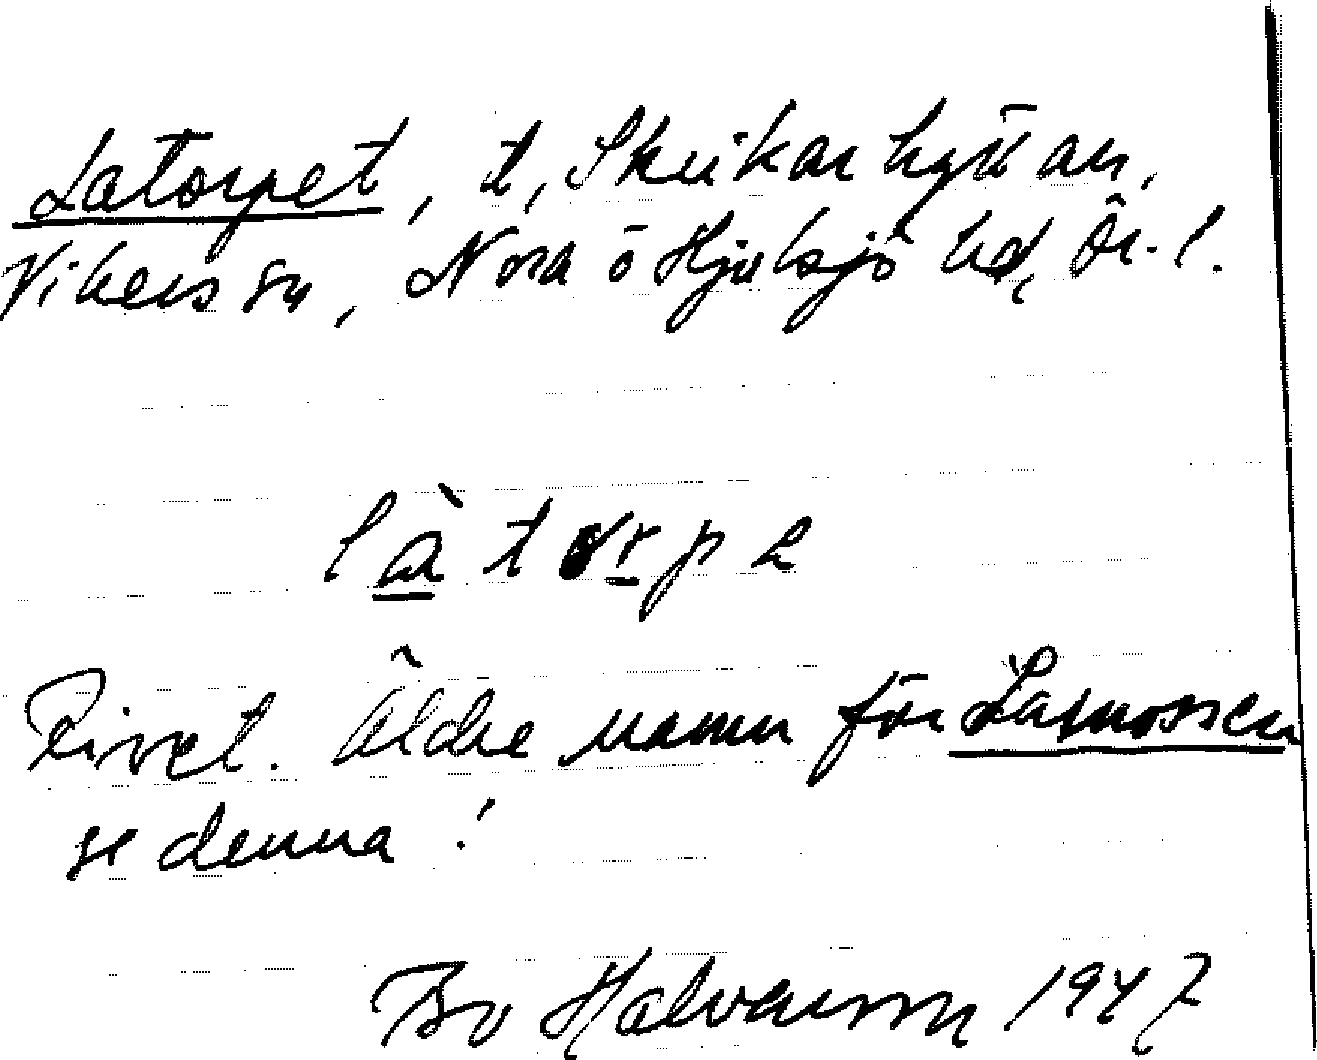 Latorpet, t, Skrikarhyttan,
Vikers sn, Nora o Hjulsjö hd, Ör. l.
làtorp
Rivet. Äldre namn för Lamossen
se denna!
Bo Halvarsson 1947